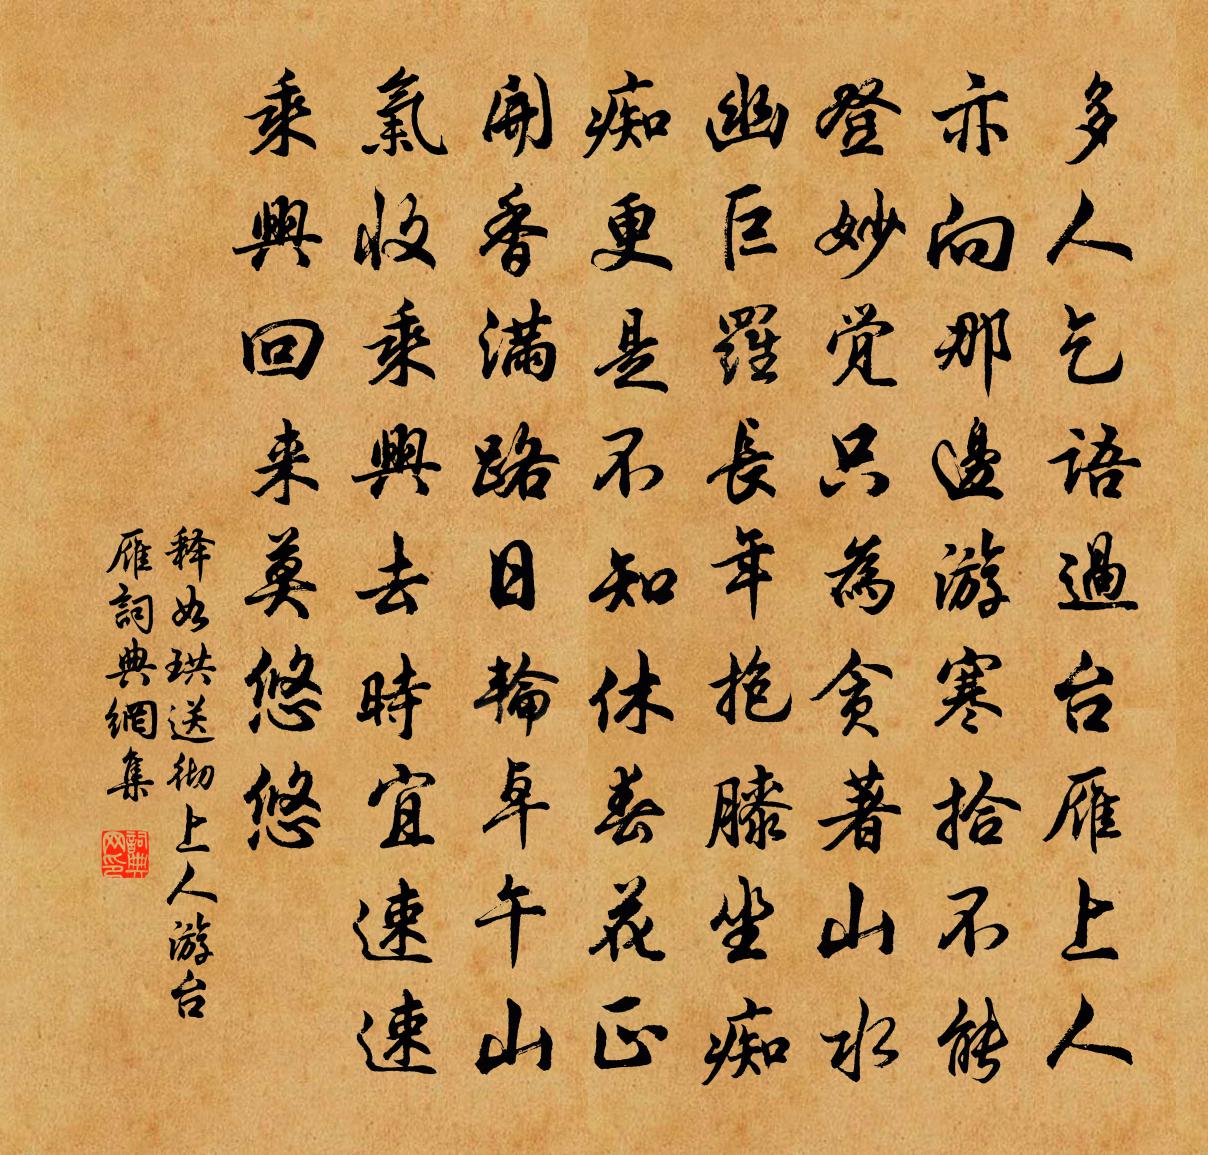 多人乞語過台雁上人
亦向那邊游寒拾不能
登妙覚只為貪著山水
幽巨羅長年抱膝坐痴
痴更是不知休春花正
開香滿路日輪卓午山
氣收乘興去時宜速速
乘興回来莫悠悠
释如珙送彻上人游台
雁詞典網集
詞典网印